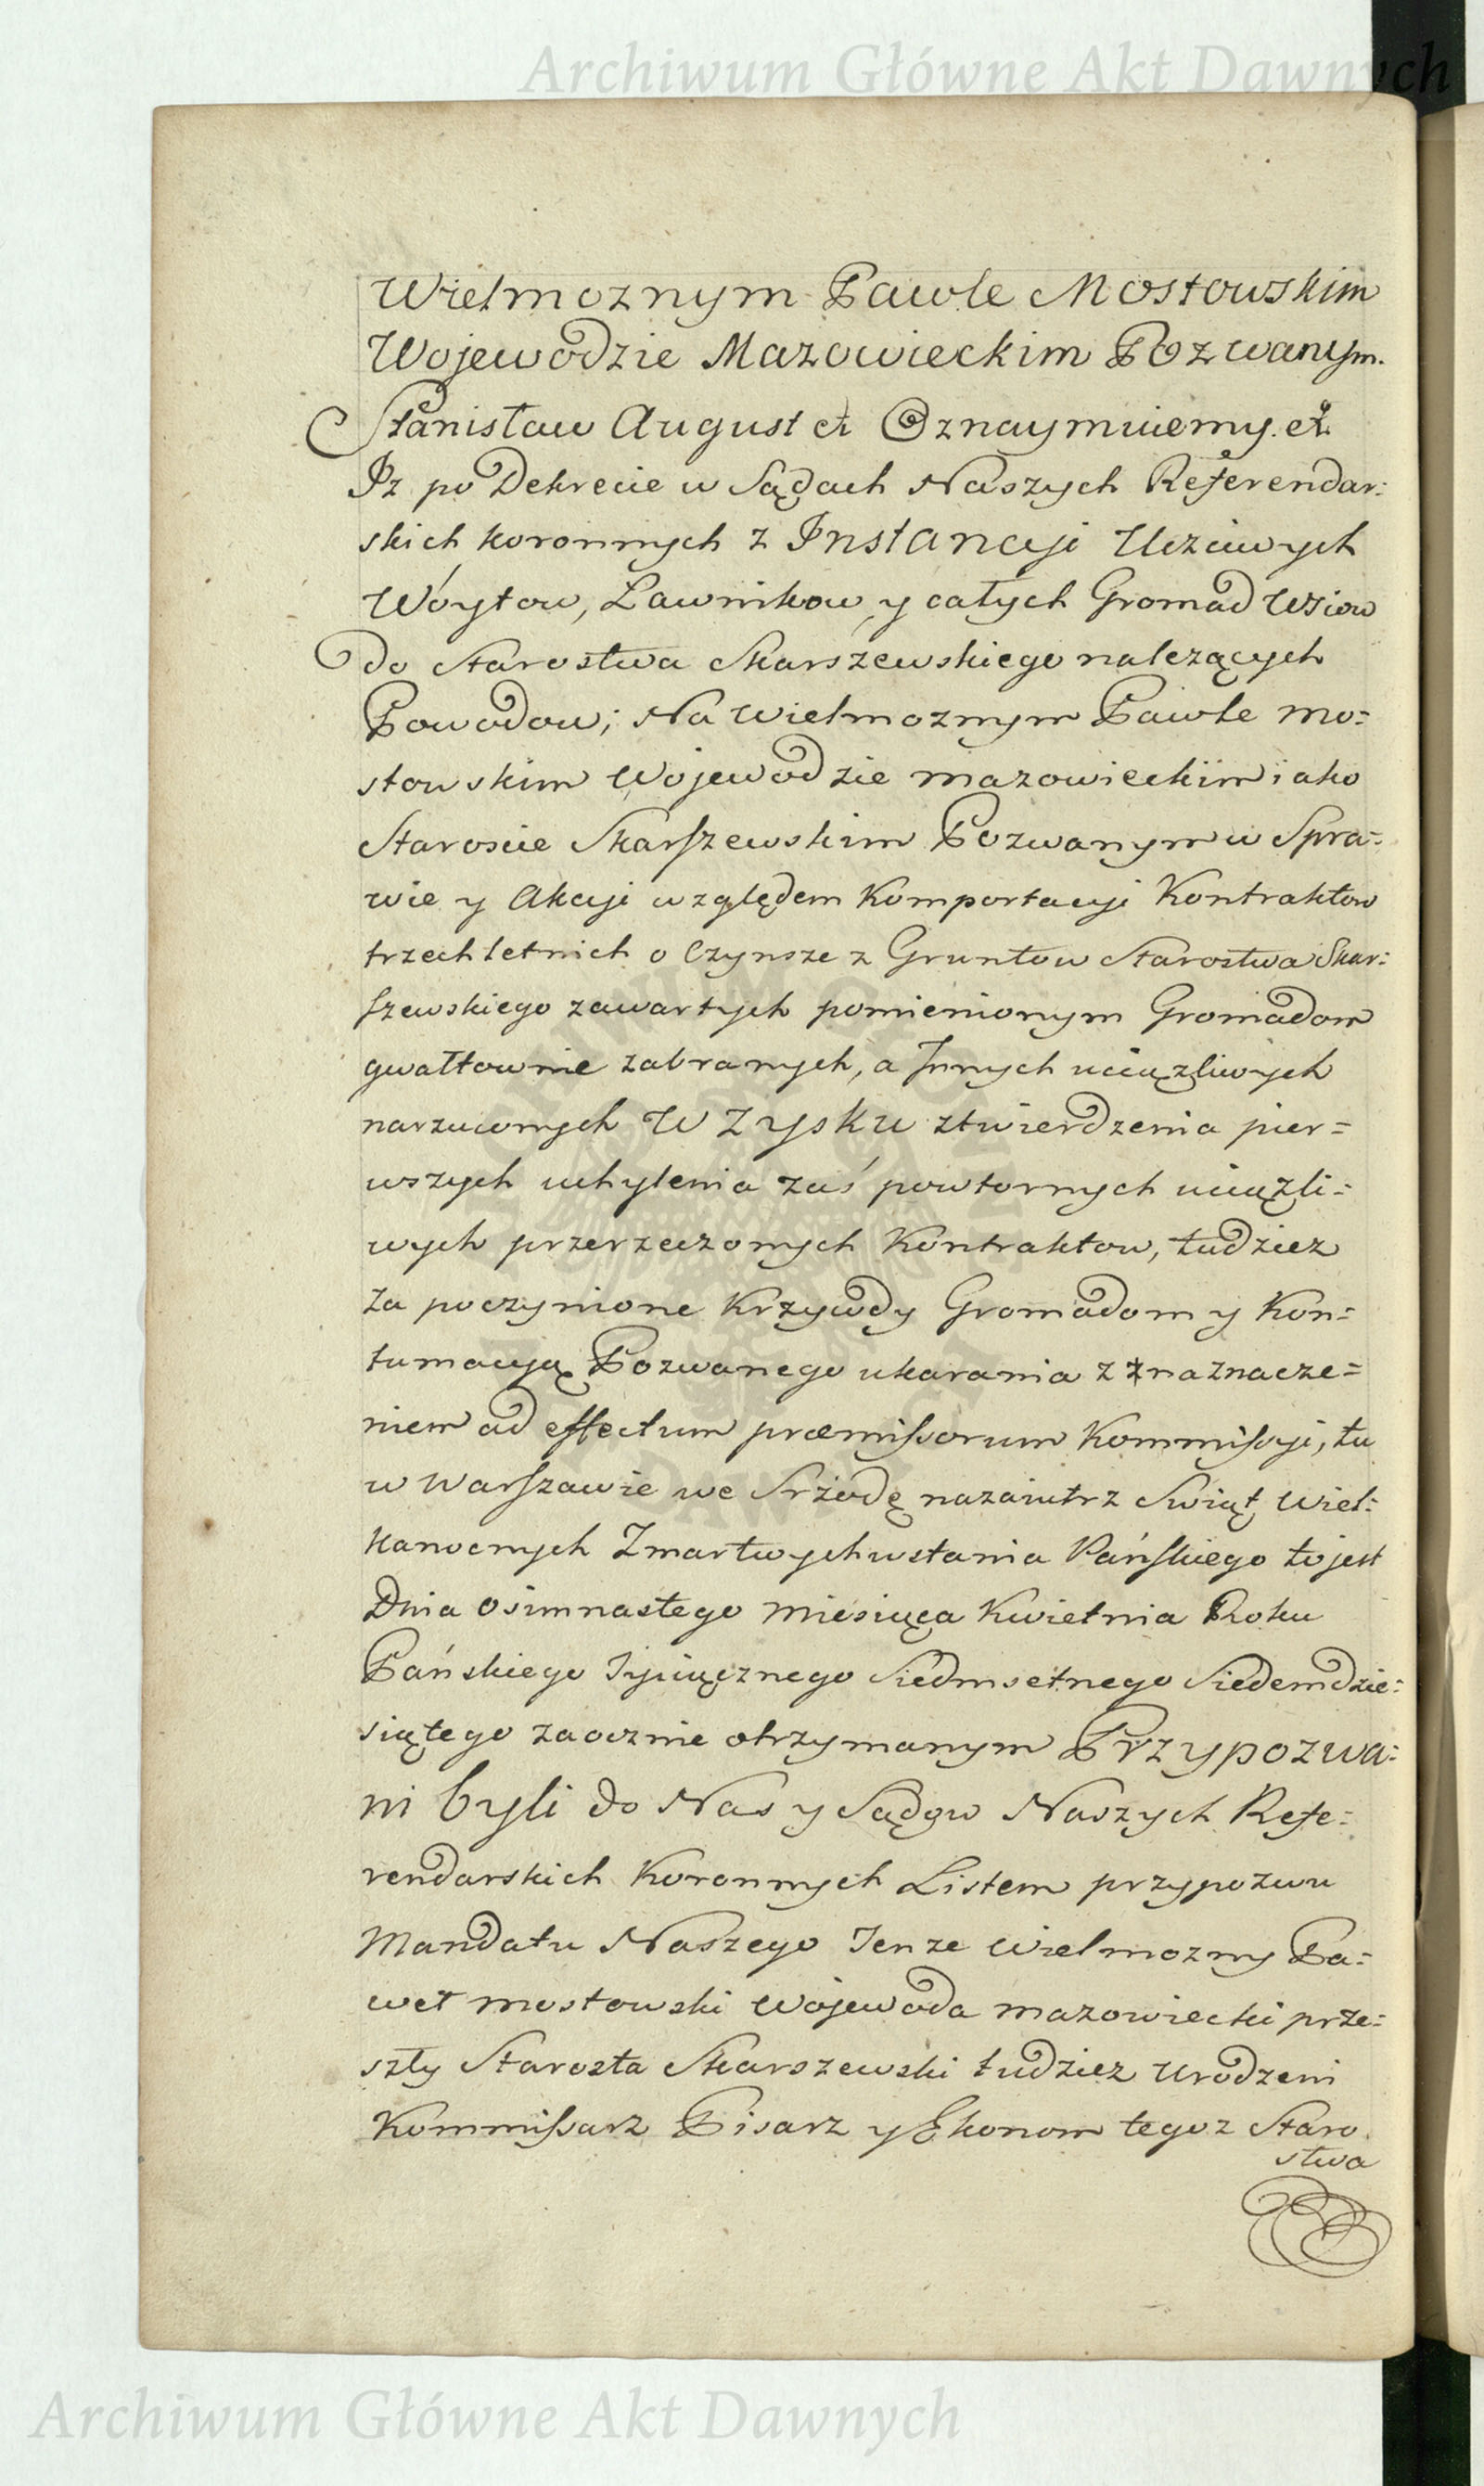 Archiwum Główne Akt Dawnych
Wielmoznym Pawle Mostowskim
Wojewodzie Mazowieckim Pozwanym.
Stanisław August et Oznaymuiemy. et.
Iz po Dekrecie w Sądach Naszych Referendar:
skich koronnych z Instancyi Uczciwych
Wóytow, Ławnikow, y całych Gromad Wsiow
do Starostwa Skarszewskiego nalezących
Powodow; Na Wielmoznym Pawle Mo=
stowskim Wojewodzie mazowieckim iako
Staroscie Skarſzewskim Pozwanym w Spra=
wie y Akcyi względem Komportacyi Kontraktow
trzechletnich o Czynsze z Gruntow Starostwa Skar:
ſzewskiego zawartych pomienionym Gromadom
gwałtownie zabranych, a Innych uciązliwych
narzuconych W Zysku ztwierdzenia pier=
wszych uchylenia zaś powtornych uciązli=
wych przerzeczonych Kontraktow, tudziez
za poczynione Krzywdy Gromadom y Kon=
tumacyą Pozwanego ukarania z znaznacze=
niem ad effectum præmiſsorum Kommiſsyi, tu
w Warſzawie we Srzodę nazaiutrz Swiąt Wiel:
kanocnych Zmartwychwstania Pańſkiego to jest
Dnia Osimnastego Miesiąca Kwietnia Roku
Pańskiego Tysiącznego Siedmsetnego Siedemdzie=
siątego zaocznie otrzymanym Przypozwa=
ni byli do Nas y Sądow Naszych Refe=
rendarskich Koronnych Listem przypozwu
Mandatu Naszego Tenze Wielmozny Pa=
weł Mostowski Wojewoda mazowiecki prze=
szły Starosta Skarszewski tudziez Urodzeni
Kommiſsarz Pisarz y Ekonom tegoz Staro
stwa
Archiwum Główne Akt Dawnych